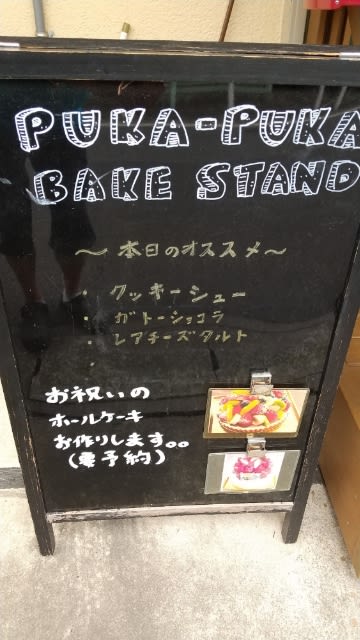 PUKA-PUKA
BAKE STAND
〜本日のオススメ〜
・クッキーシュー
・ガトーショコラ
・レアチーズタルト
・
お祝いの
ホールケーキ
お作りします。。
(要予約)